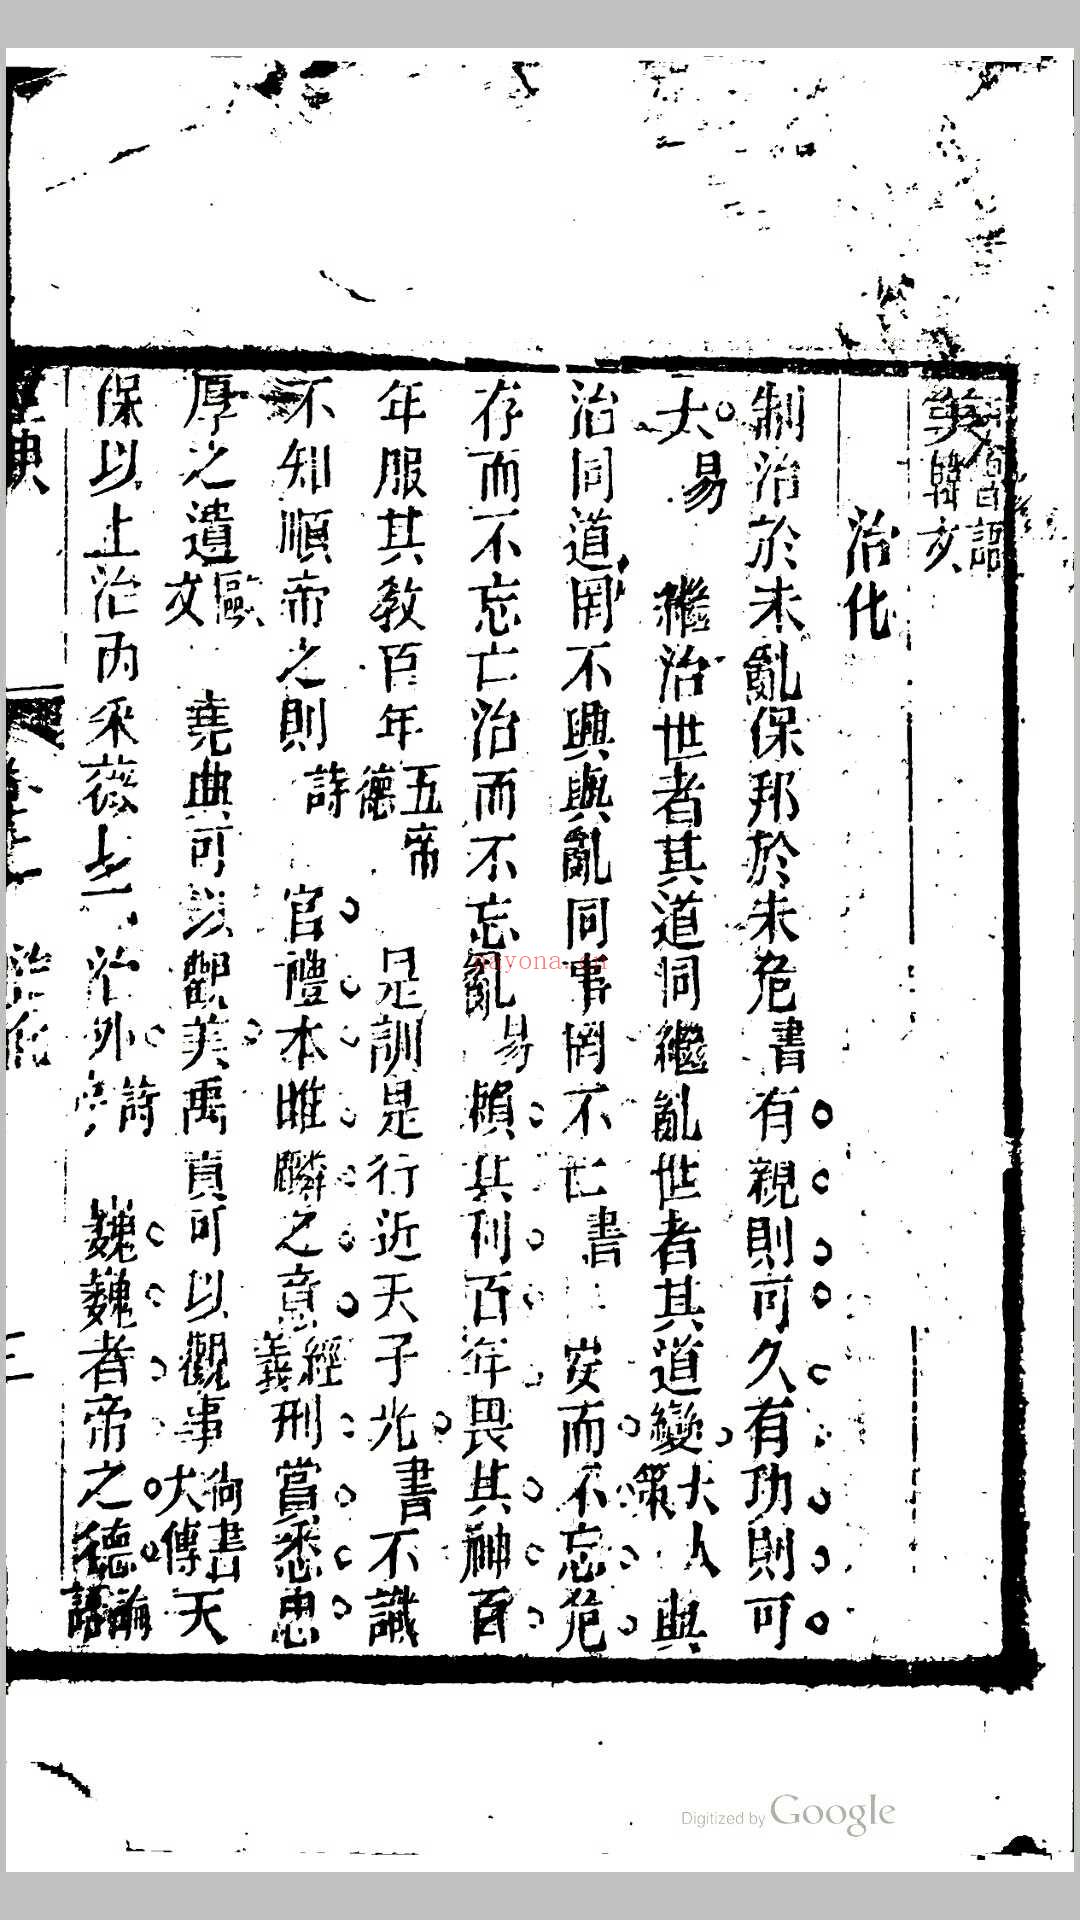 英韓文
治化
制治於未亂保邦於未危書有親則可久有功則可
大易 繼治世者其道同繼亂世者其道變大人策 與
治同道罔不興與亂同事罔不亡書 安而不忘危
存而不忘亡治而不忘亂易賴其利百年畏其神百
年服其教百年五帝德 是訓是行近天子光書不識
不知順帝之則詩 官禮本睢麟之意經義刑賞悉忠
厚之遺歐文 堯典可以觀美禹貢可以觀事尚書大傳天
保以上治內采薇 治外詩 巍巍者帝之德論語
治化
三
nayona.cn
Digitized by Google